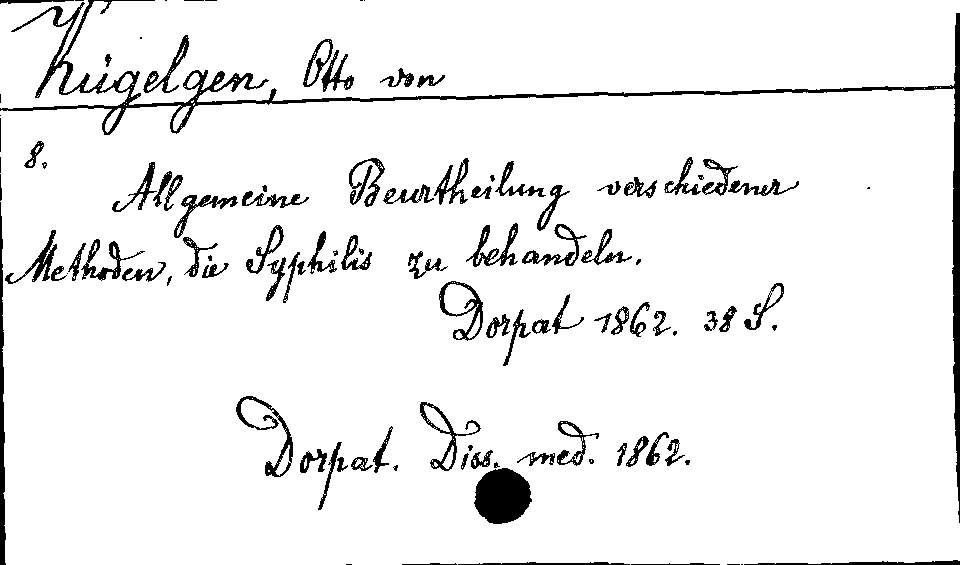 Kügelgen, Otto von
8.
Allgemeine Beurtheilung verschiedener
Methoden, die Syphilis zu behandeln.
Dorpat 1862. 38 S.
Dorpat. Diss. med. 1862.